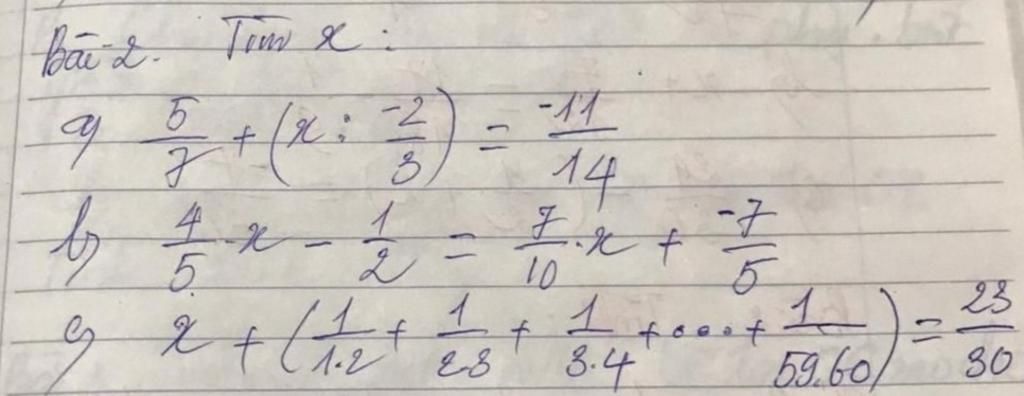 Bài 2. Tìm x :
a) 5/7 + (x : -2/3) = -11/14
b) 4/5 . x - 1/2 = 7/10 . x + -7/5
c) x + (1/1.2 + 1/2.3 + 1/3.4 + .... + 1/59.60) = 23/30